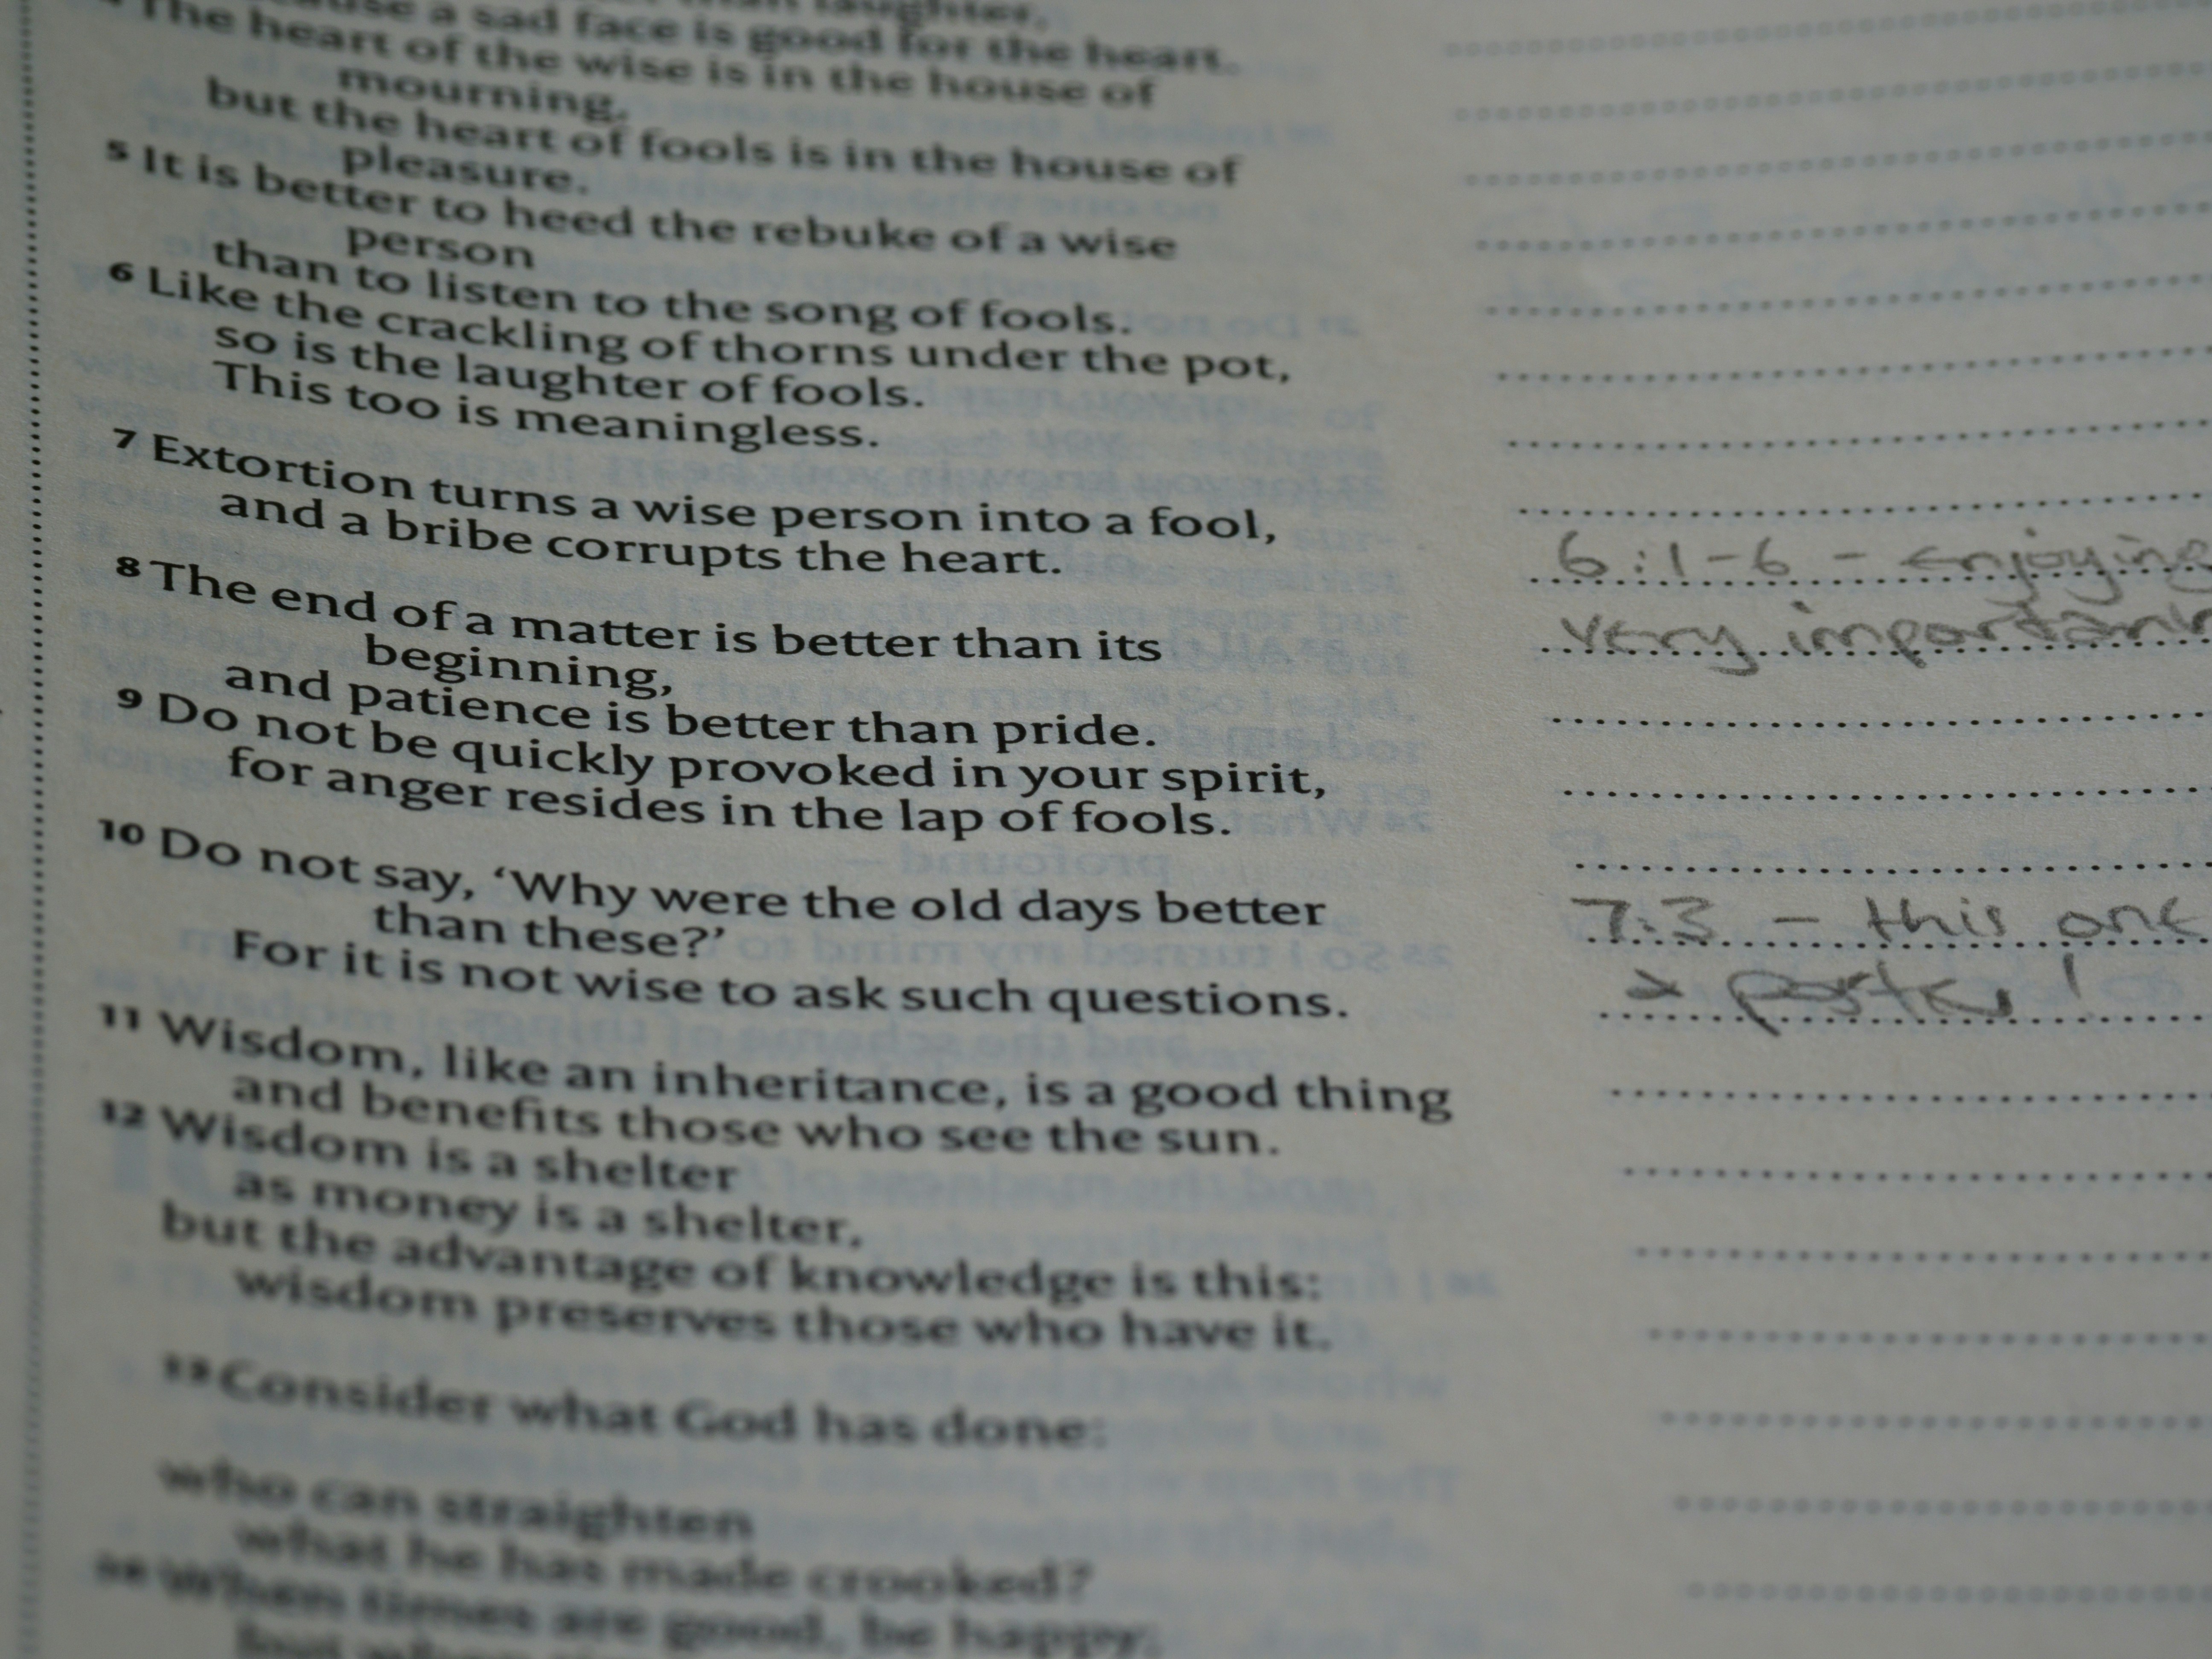 than laughter,
a sad face is good for the heart.
The heart of the wise is in the house of
mourning,
but the heart of fools is in the house of
pleasure.
5 It is better to heed the rebuke of a wise
person
than to listen to the song of fools.
6 Like the crackling of thorns under the pot,
so is the laughter of fools.
This too is meaningless.
7 Extortion turns a wise person into a fool,
and a bribe corrupts the heart.
8 The end of a matter is better than its
beginning,
and patience is better than pride.
9 Do not be quickly provoked in your spirit,
for anger resides in the lap of fools.
10 Do not say, ‘Why were the old days better
than these?’
For it is not wise to ask such questions.
11 Wisdom, like an inheritance, is a good thing
and benefits those who see the sun.
12 Wisdom is a shelter
as money is a shelter,
but the advantage of knowledge is this:
wisdom preserves those who have it.
13 Consider what God has done:
who can straighten
what he has made crooked?
14 When times are good, be happy;
but when
6:1-6 - enjoying
very important
7:3 - this one